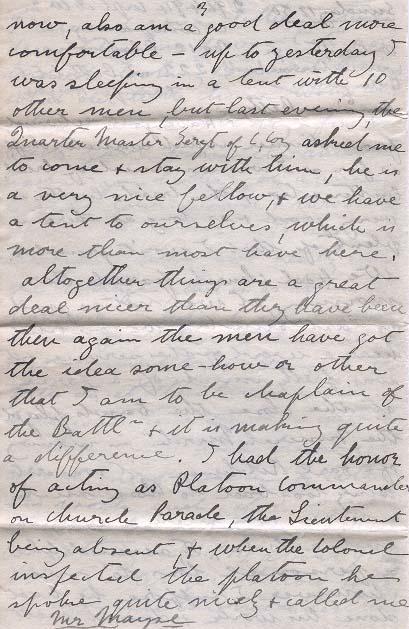 3
now, also am a good deal more
comfortable - up to yesterday I
was sleeping in a tent with 10
other men, but last evening, the
Quarter Master Sergt of C, Coy asked me
to come & stay with him, he is
a very nice fellow, & we have
a tent to ourselves, which is
more than most have here.
altogether things are a great
deal nicer than they have been
then again the men have got
the idea some-how or other
that I am to be chaplain of
the Battln & it is making quite
a difference. I had the honor
of acting as Platoon Commander
on church Parade, the Lieutenant
being absent, & when the Colonel
inspected the platoon he
spoke quite nicely & called me
Mr Mayse